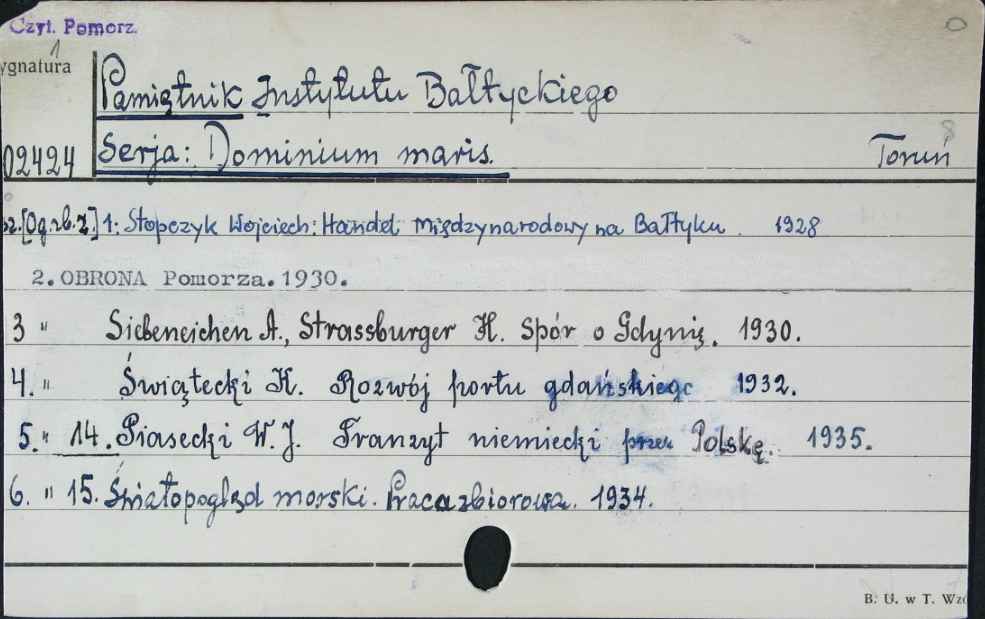 Czyt. Pomorz.
1
ygnatura
Pamiętnik Instytutu Bałtyckiego
8
02424
Serja: Dominium maris.
Toruń
sz.[Og.zb.z.] 1: Stopczyk Wojciech: Handel międzynarodowy na Bałtyku. 1928
2. OBRONA Pomorza. 1930.
3 " Siebeneichen A., Strassburger H. Spór o Gdynię. 1930.
4. " Świątecki K. Rozwój portu gdańskiego 1932.
5. " 14. Piasecki W. J. Tranzyt niemiecki przez Polskę. 1935.
6. " 15. Światopogląd morski. Praca zbiorowa. 1934.
B. U. w T. Wzó